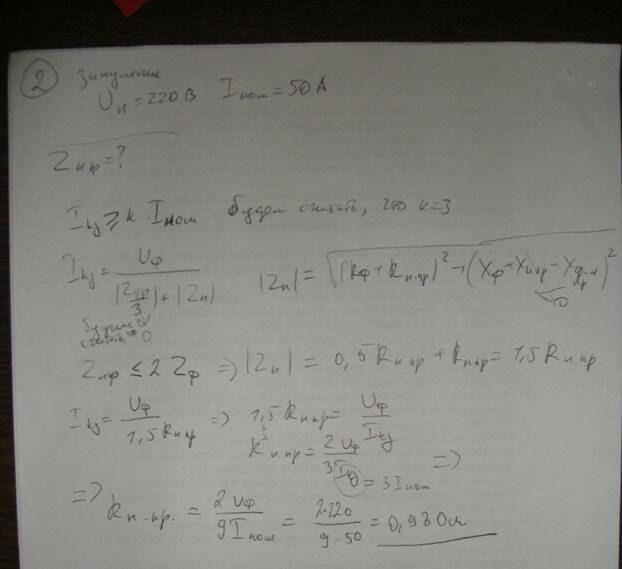 2 Зануление
Uн = 220 В Iном = 50 А
Zн пр = ?
Iкз ≥ k · Iном будем считать, что k = 3
Iкз = Uф / (|Zтр/3| + |Zп|) |Zп| = √((Rф + Rн.пр)² + (Xф + Xн.пр - Xф-н)²)
будем считать 0
Zнф ≤ 2 Zф ⇒ |Zп| = 0,5 Rн пр + Rн пр = 1,5 Rн пр
Iкз = Uф / 1,5 Rн пр ⇒ 1,5 Rн пр = Uф / Iкз
Rн пр = 2 Uф / 3 Iкз ⇒
= 3 Iном
⇒ Rн.пр. = 2 Uф / 9 Iном = 2·220 / 9·50 = 0,98 Ом